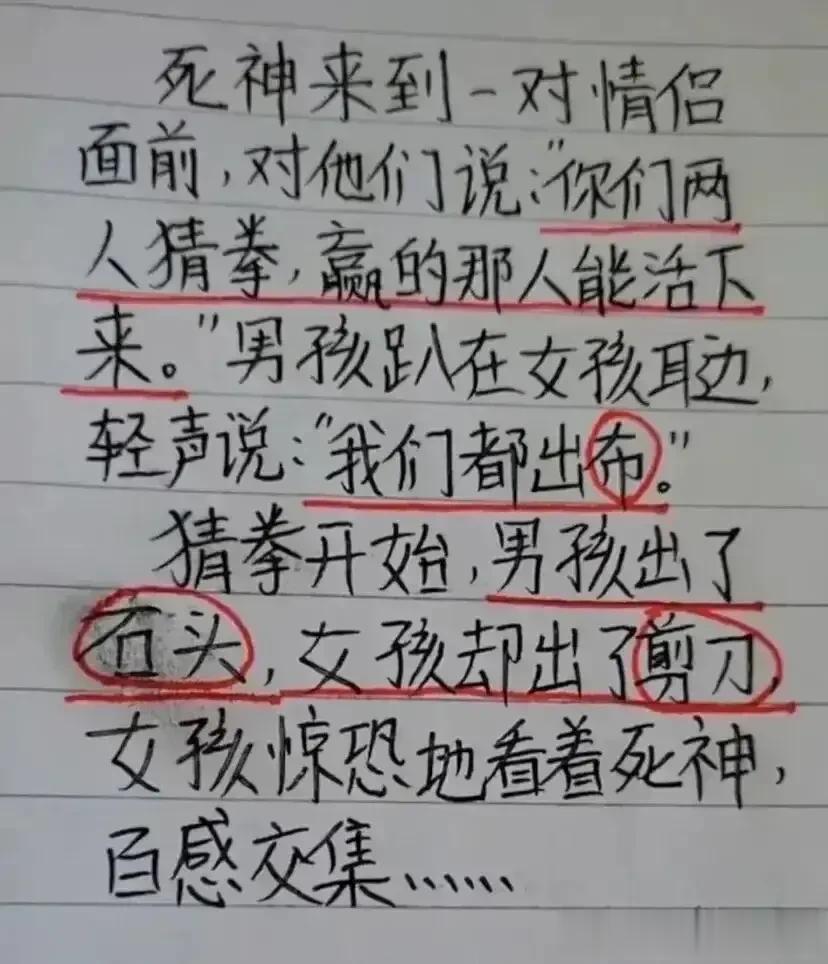 死神来到一对情侣
面前,对他们说:"你们两
人猜拳,赢的那人能活下
来。"男孩趴在女孩耳边,
轻声说:"我们都出布。"
猜拳开始,男孩出了
石头,女孩却出了剪刀,
女孩惊恐地看着死神,
百感交集……